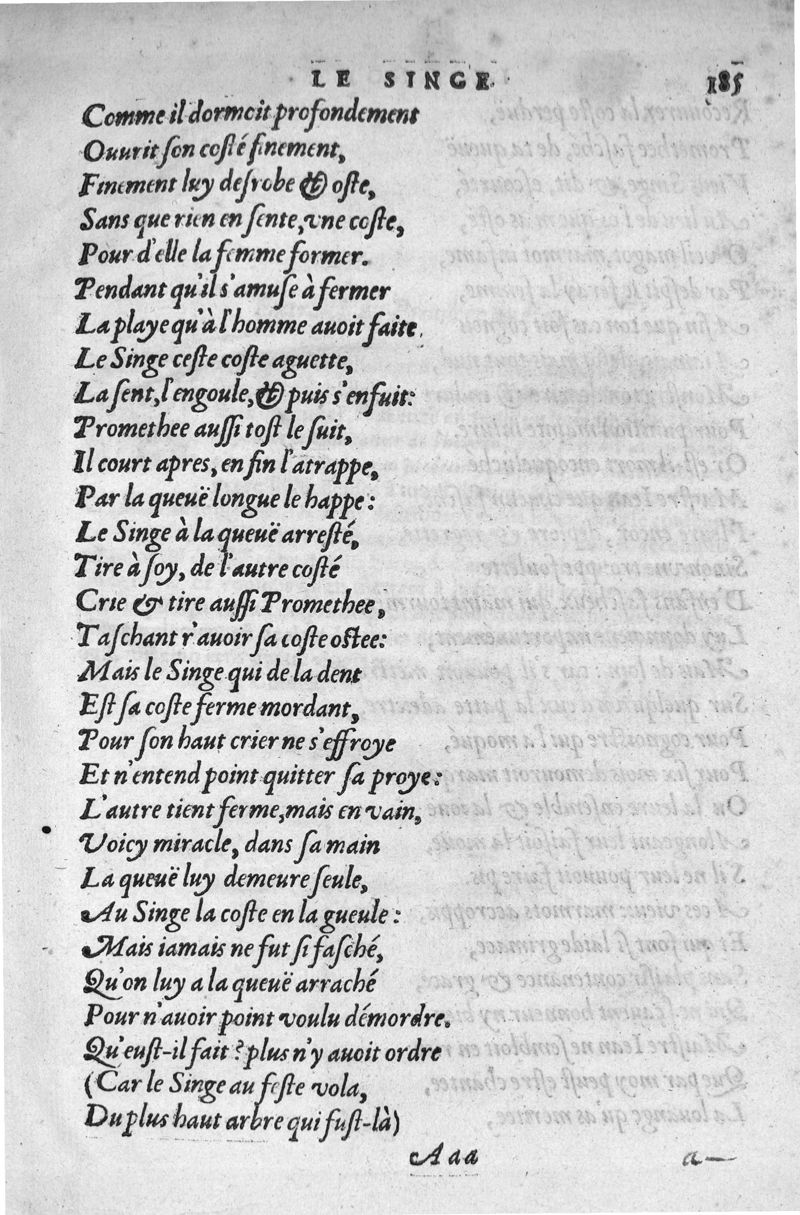 LE SINGE. 185
Comme il dormoit profondement
Ouurit son costé finement,
Finement luy desrobe & oste,
Sans que rien en sente, vne coste,
Pour d'elle la femme former.
Pendant qu'il s'amuse à fermer
La playe qu'à l'homme auoit faite,
Le Singe ceste coste aguette,
La sent, l'engoule, & puis s'enfuit:
Promethee aussi tost le suit,
Il court apres, en fin l'atrappe,
Par la queuë longue le happe:
Le Singe à la queuë arresté,
Tire à soy, de l'autre costé
Crie & tire aussi Promethee,
Taschant r'auoir sa coste ostee:
Mais le Singe qui de la dent
Est sa coste ferme mordant,
Pour son haut crier ne s'effroye
Et n'entend point quitter sa proye:
L'autre tient ferme, mais en vain,
Voicy miracle, dans sa main
La queuë luy demeure seule,
Au Singe la coste en la gueule:
Mais iamais ne fut si fasché,
Qu'on luy a la queuë arraché
Pour n'auoir point voulu démordre.
Qu'eust-il fait? plus n'y auoit ordre
(Car le Singe au feste vola,
Du plus haut arbre qui fust-là)
Aaa a—